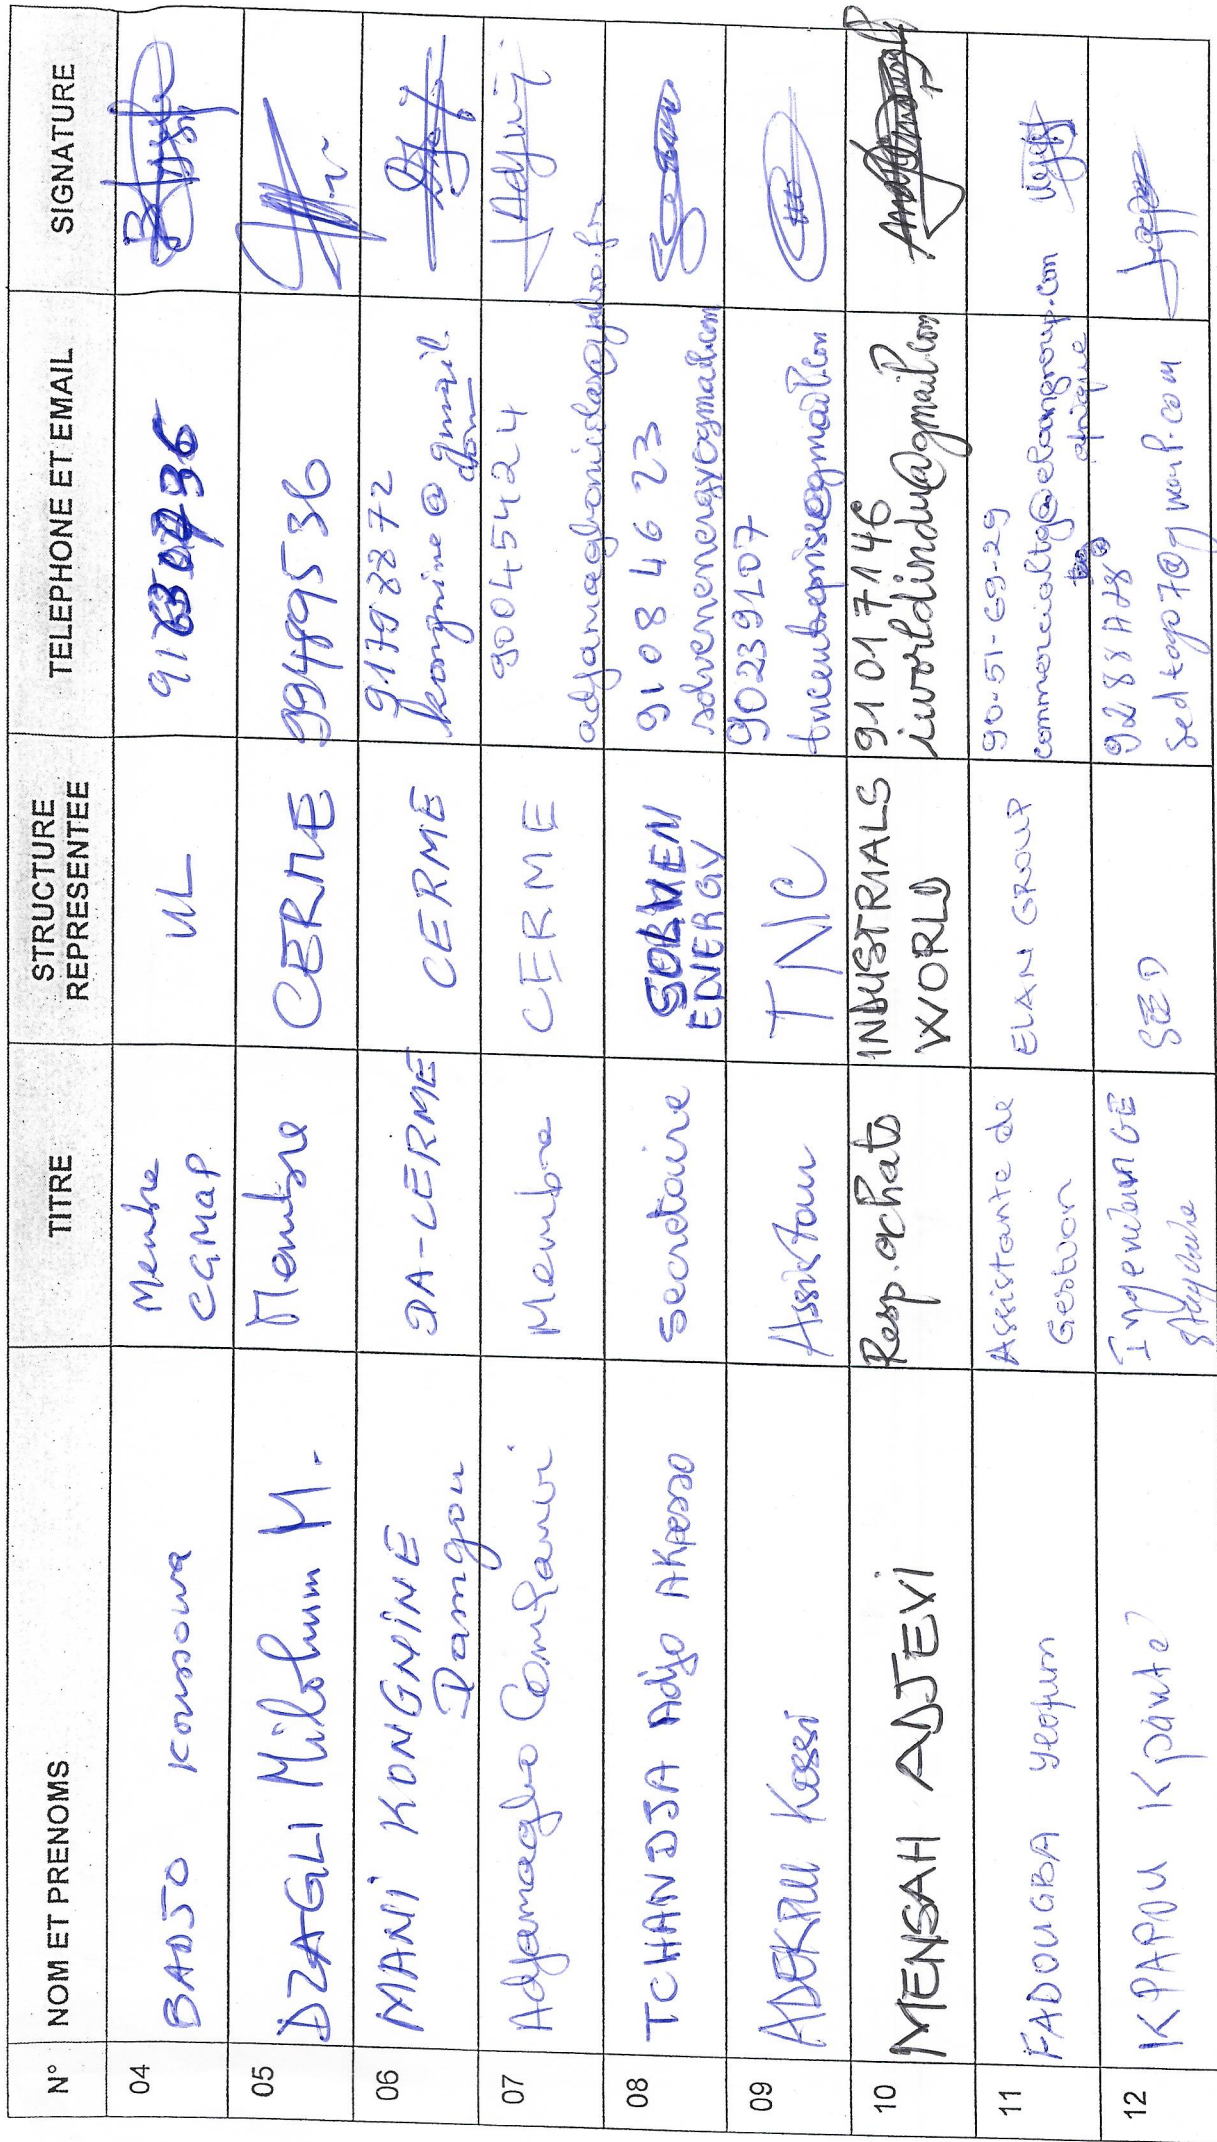 N° NOM ET PRENOMS TITRE STRUCTURE REPRESENTEE TELEPHONE ET EMAIL SIGNATURE
04 BADJO Kossowa Membre CGMAP UL 91
05 DZAGLI Milohum M. Membre CERME 99489536
06 MANI KONGNINE Damgou DA-CERME CERME 91798872
kongnine@gmail.com
07 Adjamagbo Comlanvi Membre CERME 90045424
08 TCHANDJA Adjo AKPESSO Secretaire SOLVEN ENERGY 91 08 46 23
solvenenergy@gmail.com
09 ADEKPUI Kossi Assistan TNC 90239107
tncentreprise@gmail.com
10 MENSAH ADJEVI Resp. achats INDUSTRIALS WORLD 91017146
iworldindu@gmail.com
11 FADOUGBA Assistante de Gestion ELAN GROUP 90-51-69-29
12 KPAPOU Kpante SED
sedtogo7@gmail.com